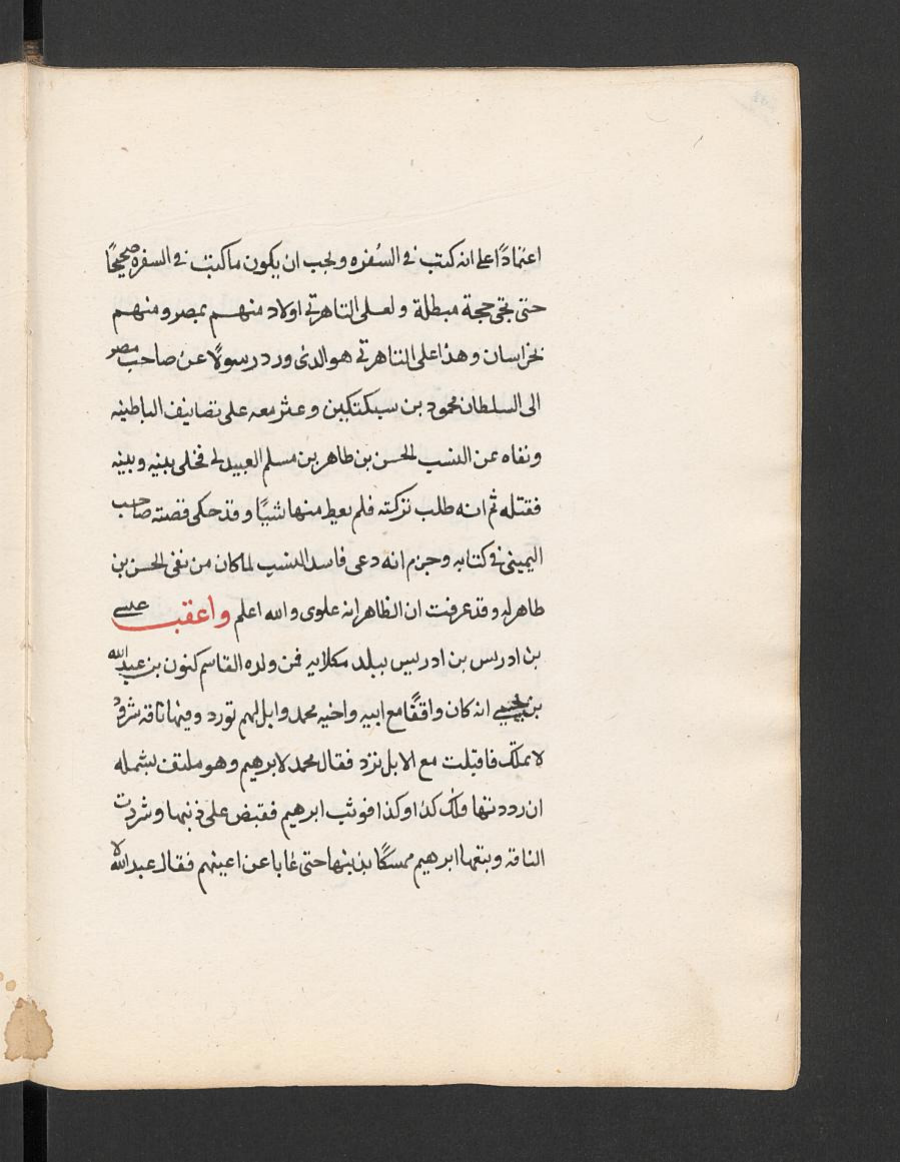 اعتمادًا على انه كتب فى السُفره ويجب ان يكون ما كتبت فى السفره صحيحًا
حتى تجى حجة مبطلة ولعلى التاهرتى اولاد منهم بمصر ومنهم
بخراسان وهذا على التاهرتى هو الذى ورد رسولًا عن صاحب مصر
الى السلطان محمود بن سبكتكين وعثر معه على تصانيف الباطنيه
ونفاه عن النسب الحسن بن طاهر بن مسلم العبيدلى فخلى بينه وبينه
فقتله ثم انه طلب تركته فلم يعط منها شيًا وقد حكى قصته صاحب
اليمينى فى كتابه وجزم انه دعى فاسد النسب لما كان من نفى الحسن بن
طاهر له وقد عرفت ان الظاهر انه علوى والله اعلم واعقب عيسى
بن ادريس بن ادريس ببلد مكلاته فمن ولده القاسم كنون بن عبد الله
بن يحيى انه كان واقفًا مع ابيه واخيه محمد وابل لهم تورد وفيها ناقه شرود
لا تملك فاقبلت مع الابل ترد فقال محمد لابرهيم وهو ملتف بشمله
ان رددتها فلك كذا وكذا فوثب ابرهيم فقبض على ذنبها وشردت
الناقه وتبعها ابرهيم ممسكًا بذنبها حتى غابا عن اعينهم فقال عبد الله